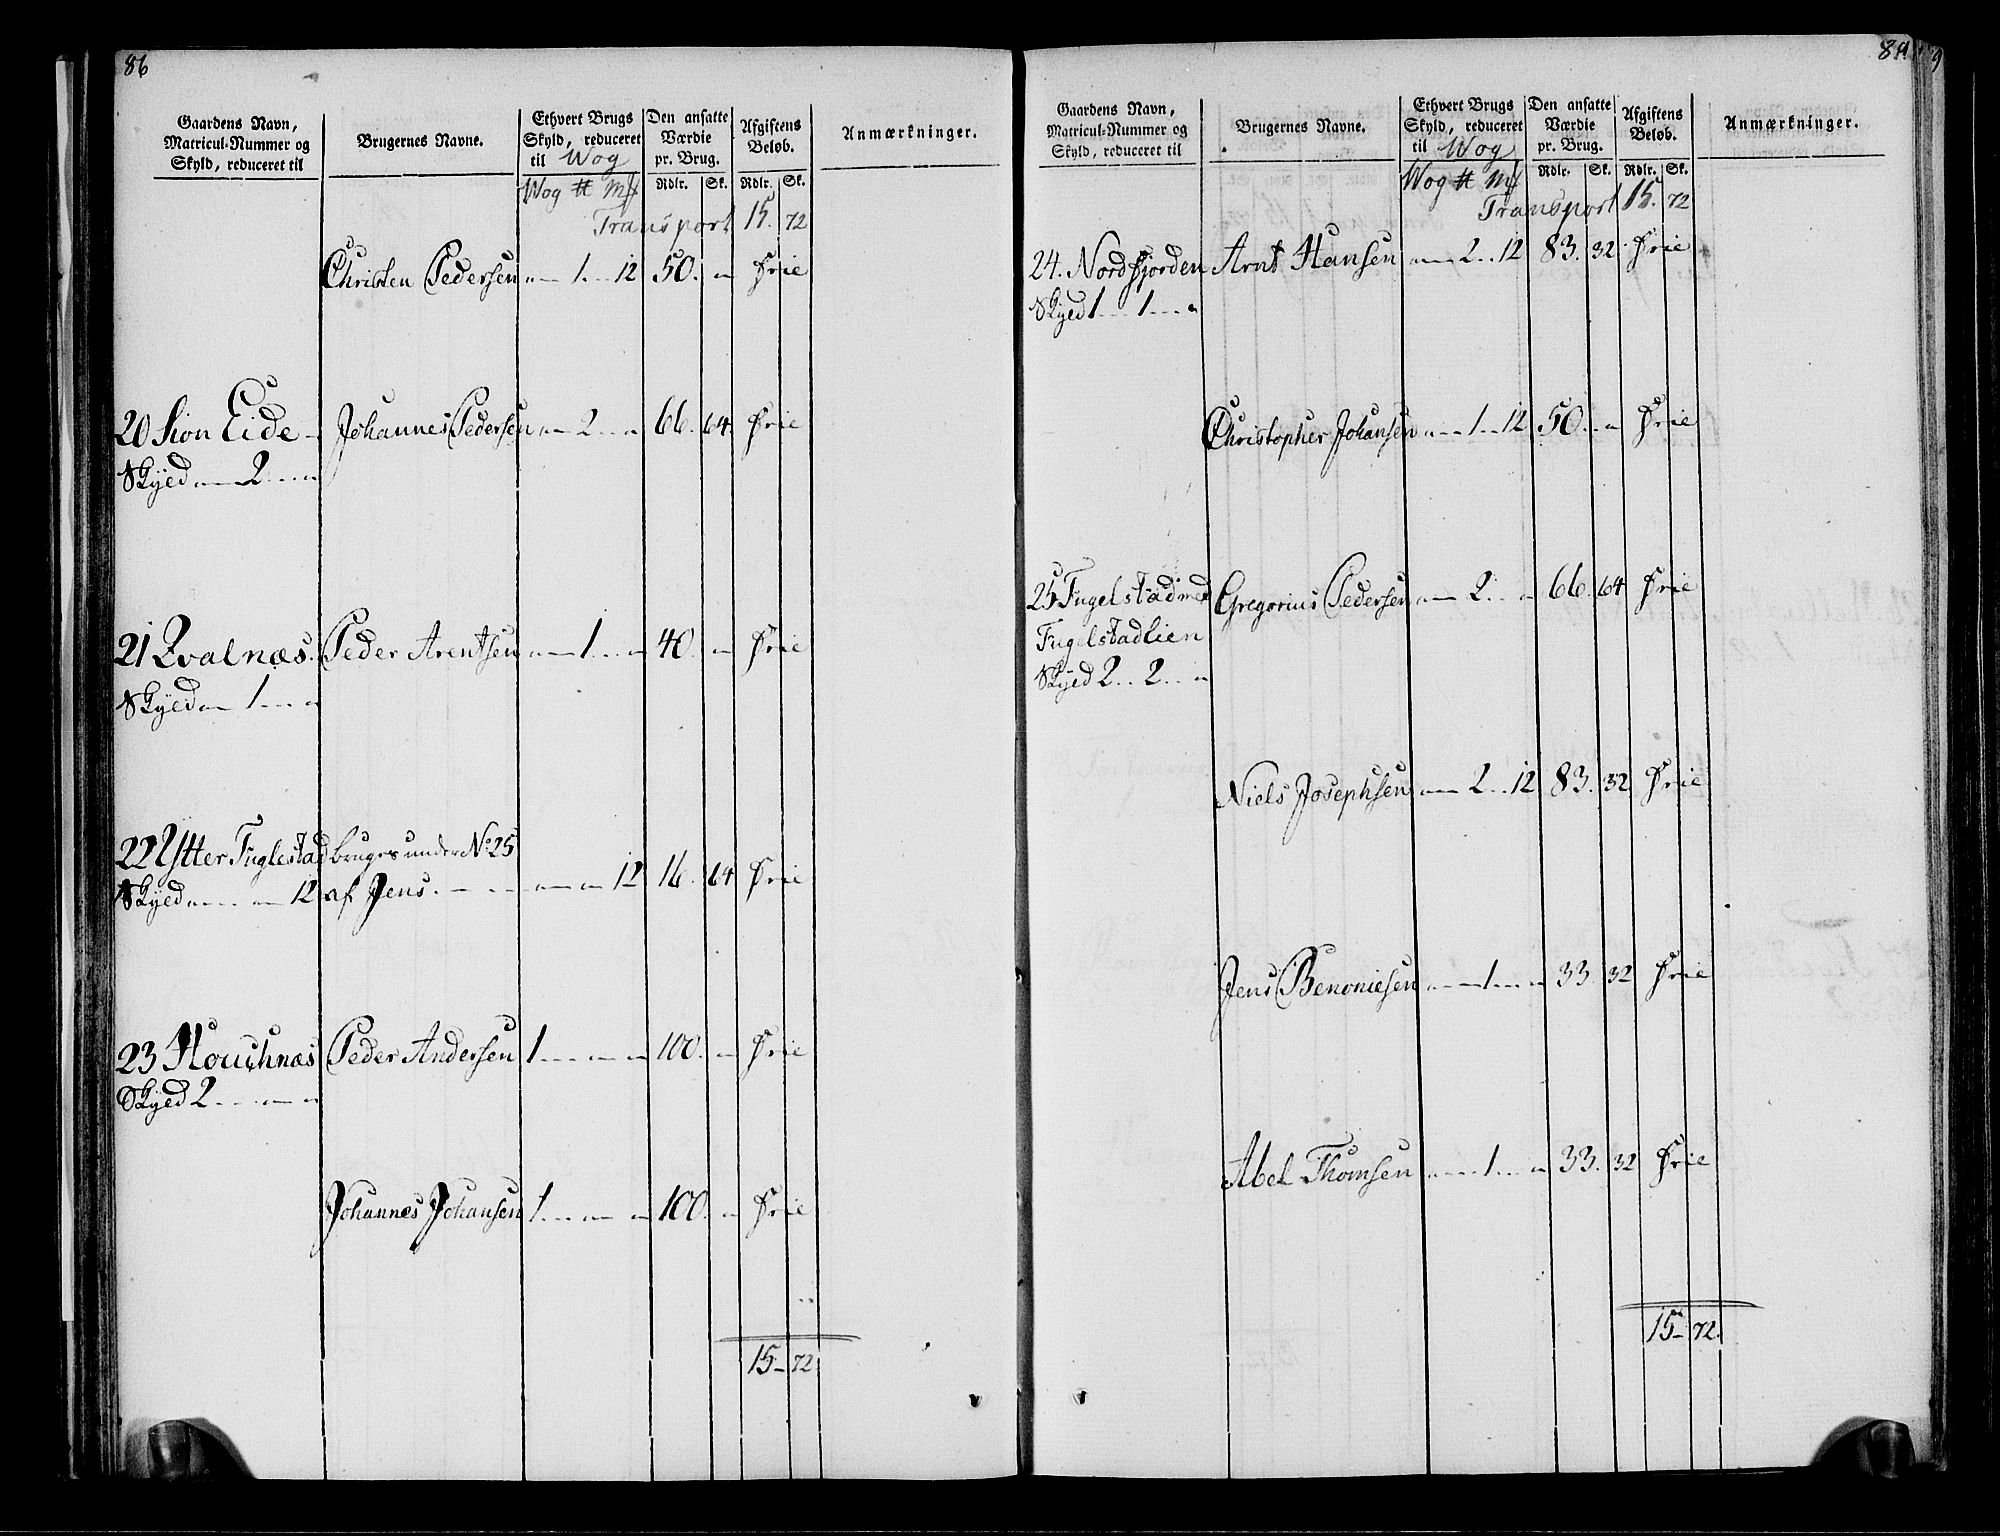 86
Gaardens Navn, Matricul-Nummer og Skyld, reduceret til
Brugernes Navne.
Ethvert Brugs Skyld, reduceret til Wog
Den ansatte Værdie pr. Brug.
Afgiftens Beløb.
Anmærkninger.
Wog ℔ Mk Rdlr. Sk. Rdlr. Sk.
Transport 15. 72
Christen Pedersen „ — 1 . . . 12 50. „ Frie
20 Sion Eide Johannes Pedersen „ — 2 . . . „ 66. 64. Frie
Skyed „ — 2 . . . „
21 Qvalnæs. Peder Arentsen „ — 1 . . . „ 40. „ Frie
Skyed „ — 1 . . . „
22 Ytter Fuglestad bruges under No 25
Skyed „ . . . „ — 12 af Jens. — „ — „ 12 16. 64 Frie
23 Houchnæs Peder Andersen 1 . . . „ — „ 100. „ Frie
Skyed 2 . . . „ — „
Johannes Johansen 1 . . . „ — „ 100. „ Frie
15 — 72
Gaardens Navn, Matricul-Nummer og Skyld, reduceret til
Brugernes Navne.
Ethvert Brugs Skyld, reduceret til Wog
Den ansatte Værdie pr. Brug.
Afgiftens Beløb.
Anmærkninger.
Wog ℔ Mk Rdlr. Sk. Rdlr. Sk.
Transport 15. 72
24. Nordfjorden Arnt Hansen „ — 2 . . 12 83. 32 Frie
Skyed 1 . . . 1 . . . „
Christopher Johansen „ — 1 . . 12 50. „ Frie
25 Fugelstad med Gregorius Pedersen „ — 2 . . „ 66. 64 Frie
Fugelstadlien
Skyed 2 . . 2 . . „
Niels Josephsen „ — 2 . . 12 83. 32 Frie
Jens Benoniesen „ — 1 . . . „ 33. 32 Frie
Abel Thomsen „ — 1 . . . „ 33. 32 Frie
15 — 72.